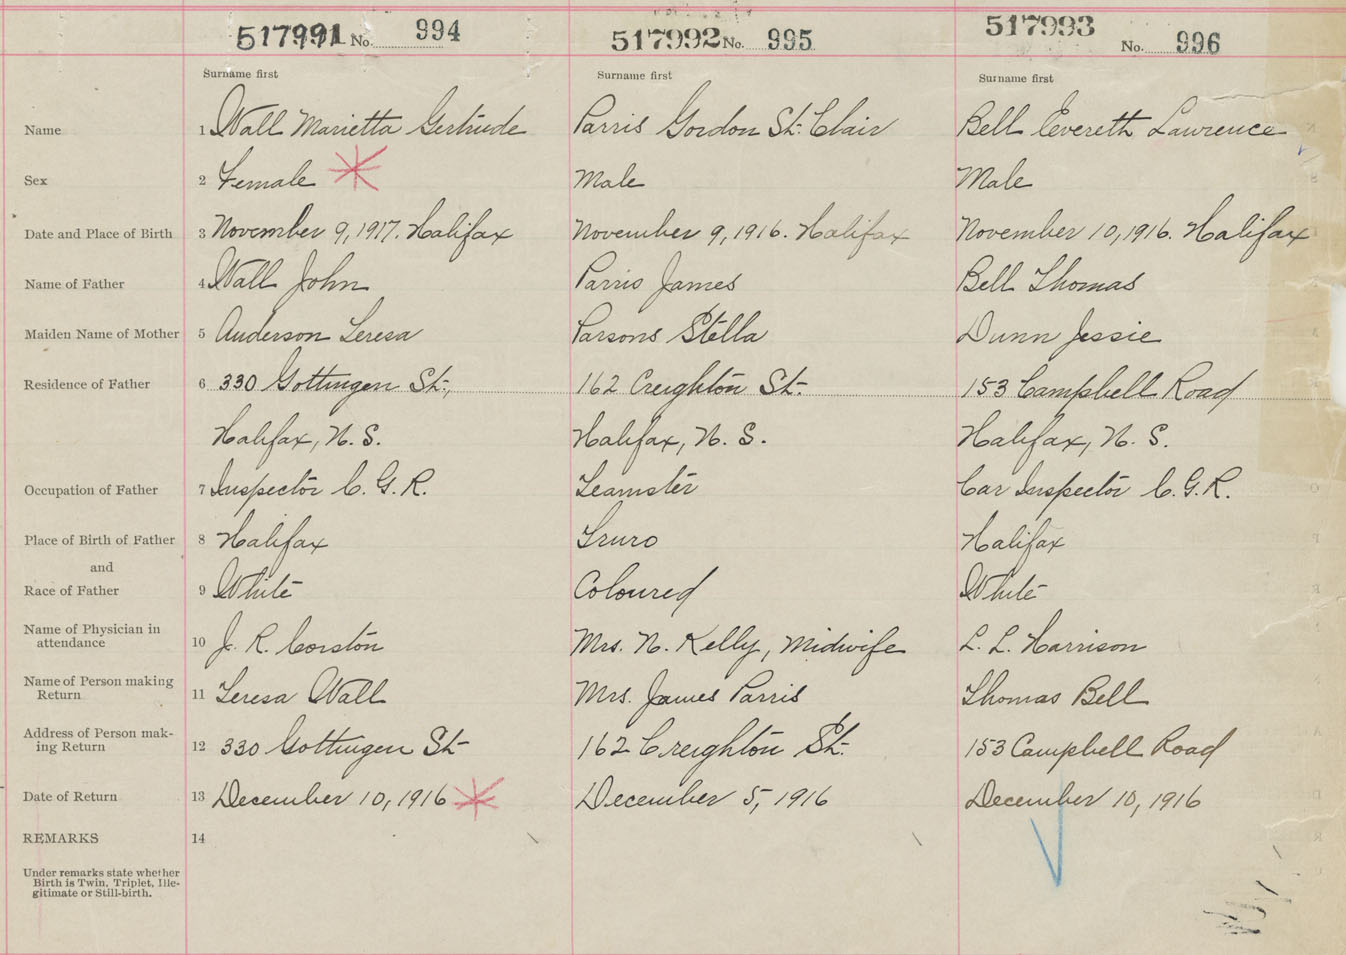 517991 No. 994 517992 No. 995 517993 No. 996
Surname first Surname first Surname first
Name 1 Wall Marietta Gertrude Parris Gordon St. Clair Bell Evereth Lawrence
Sex 2 Female Male Male
Date and Place of Birth 3 November 9, 1917. Halifax November 9, 1916. Halifax November 10, 1916. Halifax
Name of Father 4 Wall John Parris James Bell Thomas
Maiden Name of Mother 5 Anderson Teresa Parsons Stella Dunn Jessie
Residence of Father 6 330 Gottingen St., 162 Creighton St. 153 Campbell Road
Halifax, N. S. Halifax, N. S. Halifax, N. S.
Occupation of Father 7 Inspector C. G. R. Teamster Car Inspector C. G. R.
Place of Birth of Father 8 Halifax Truro Halifax
and
Race of Father 9 White Coloured White
Name of Physician in
attendance 10 J. R. Corston Mrs. N. Kelly, Midwife L. L. Harrison
Name of Person making
Return 11 Teresa Wall Mrs. James Parris Thomas Bell
Address of Person mak-
ing Return 12 330 Gottingen St 162 Creighton St. 153 Campbell Road
Date of Return 13 December 10, 1916 December 5, 1916 December 10, 1916
REMARKS 14
Under remarks state whether
Birth is Twin, Triplet, Ille-
gitimate or Still-birth.